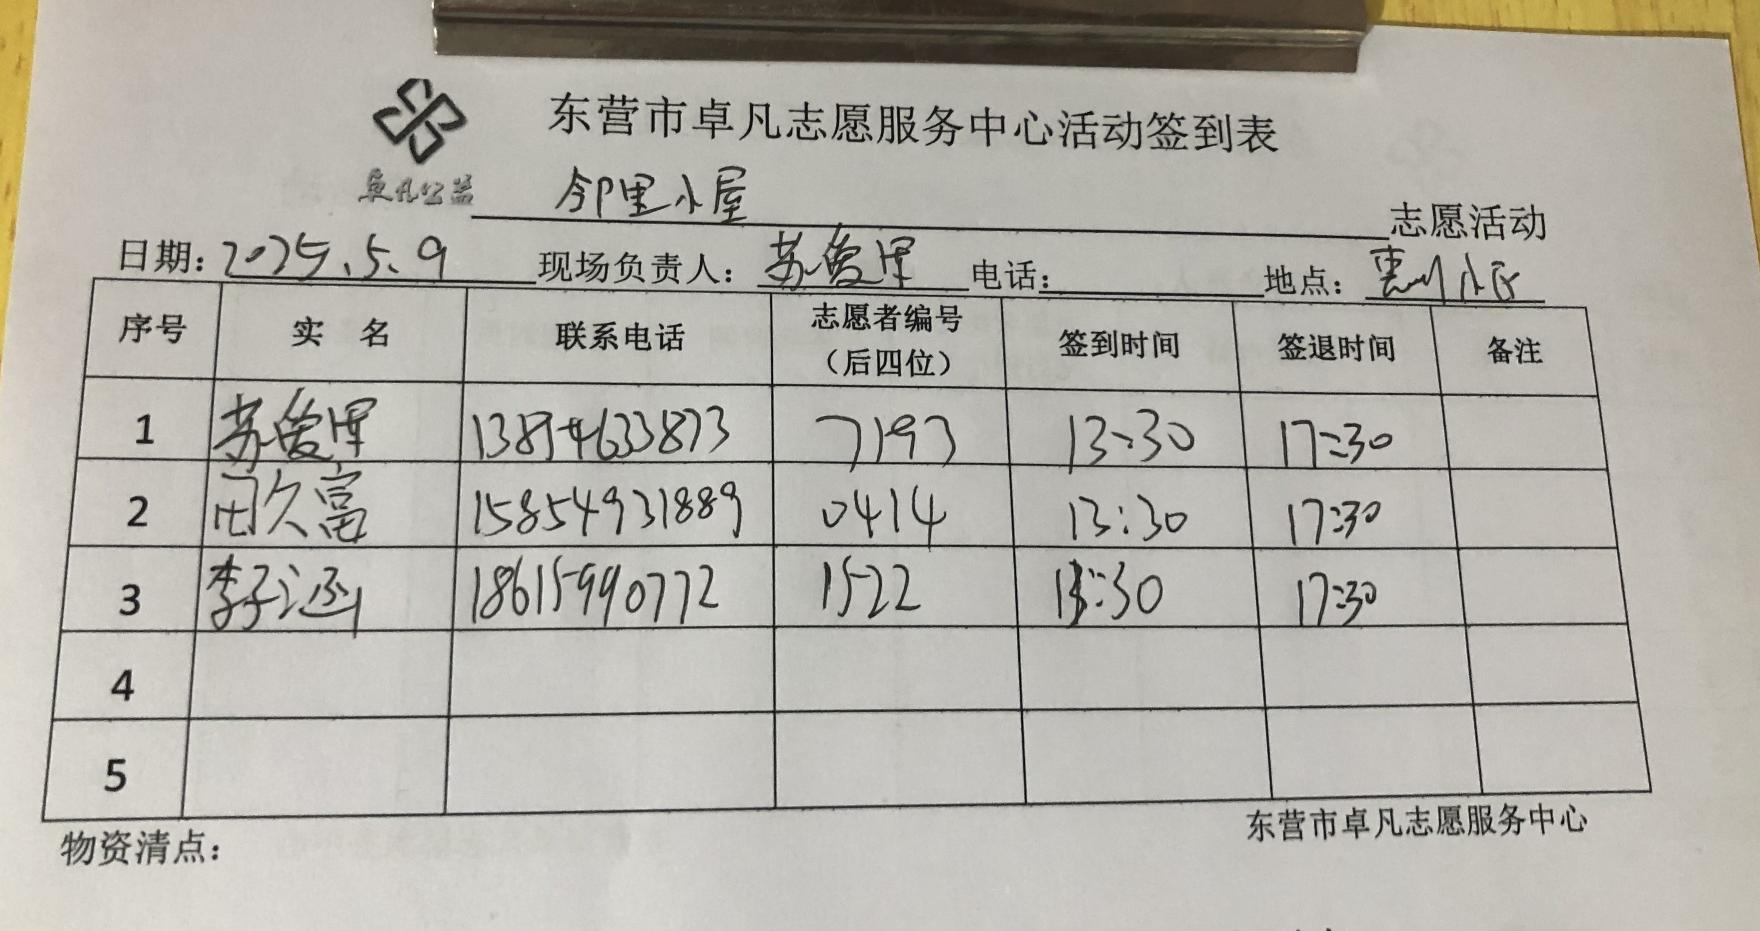 东营市卓凡志愿服务中心活动签到表
卓凡公益 邻里小屋 志愿活动
日期：2025.5.9 现场负责人：苏爱军 电话： 地点：惠州小区
序号 实 名 联系电话 志愿者编号（后四位） 签到时间 签退时间 备注
1 苏爱军 13854633873 7193 13:30 17:30
2 田久富 15854931889 0414 13:30 17:30
3 李子涵 18615990772 1522 13:30 17:30
4
5
东营市卓凡志愿服务中心
物资清点：